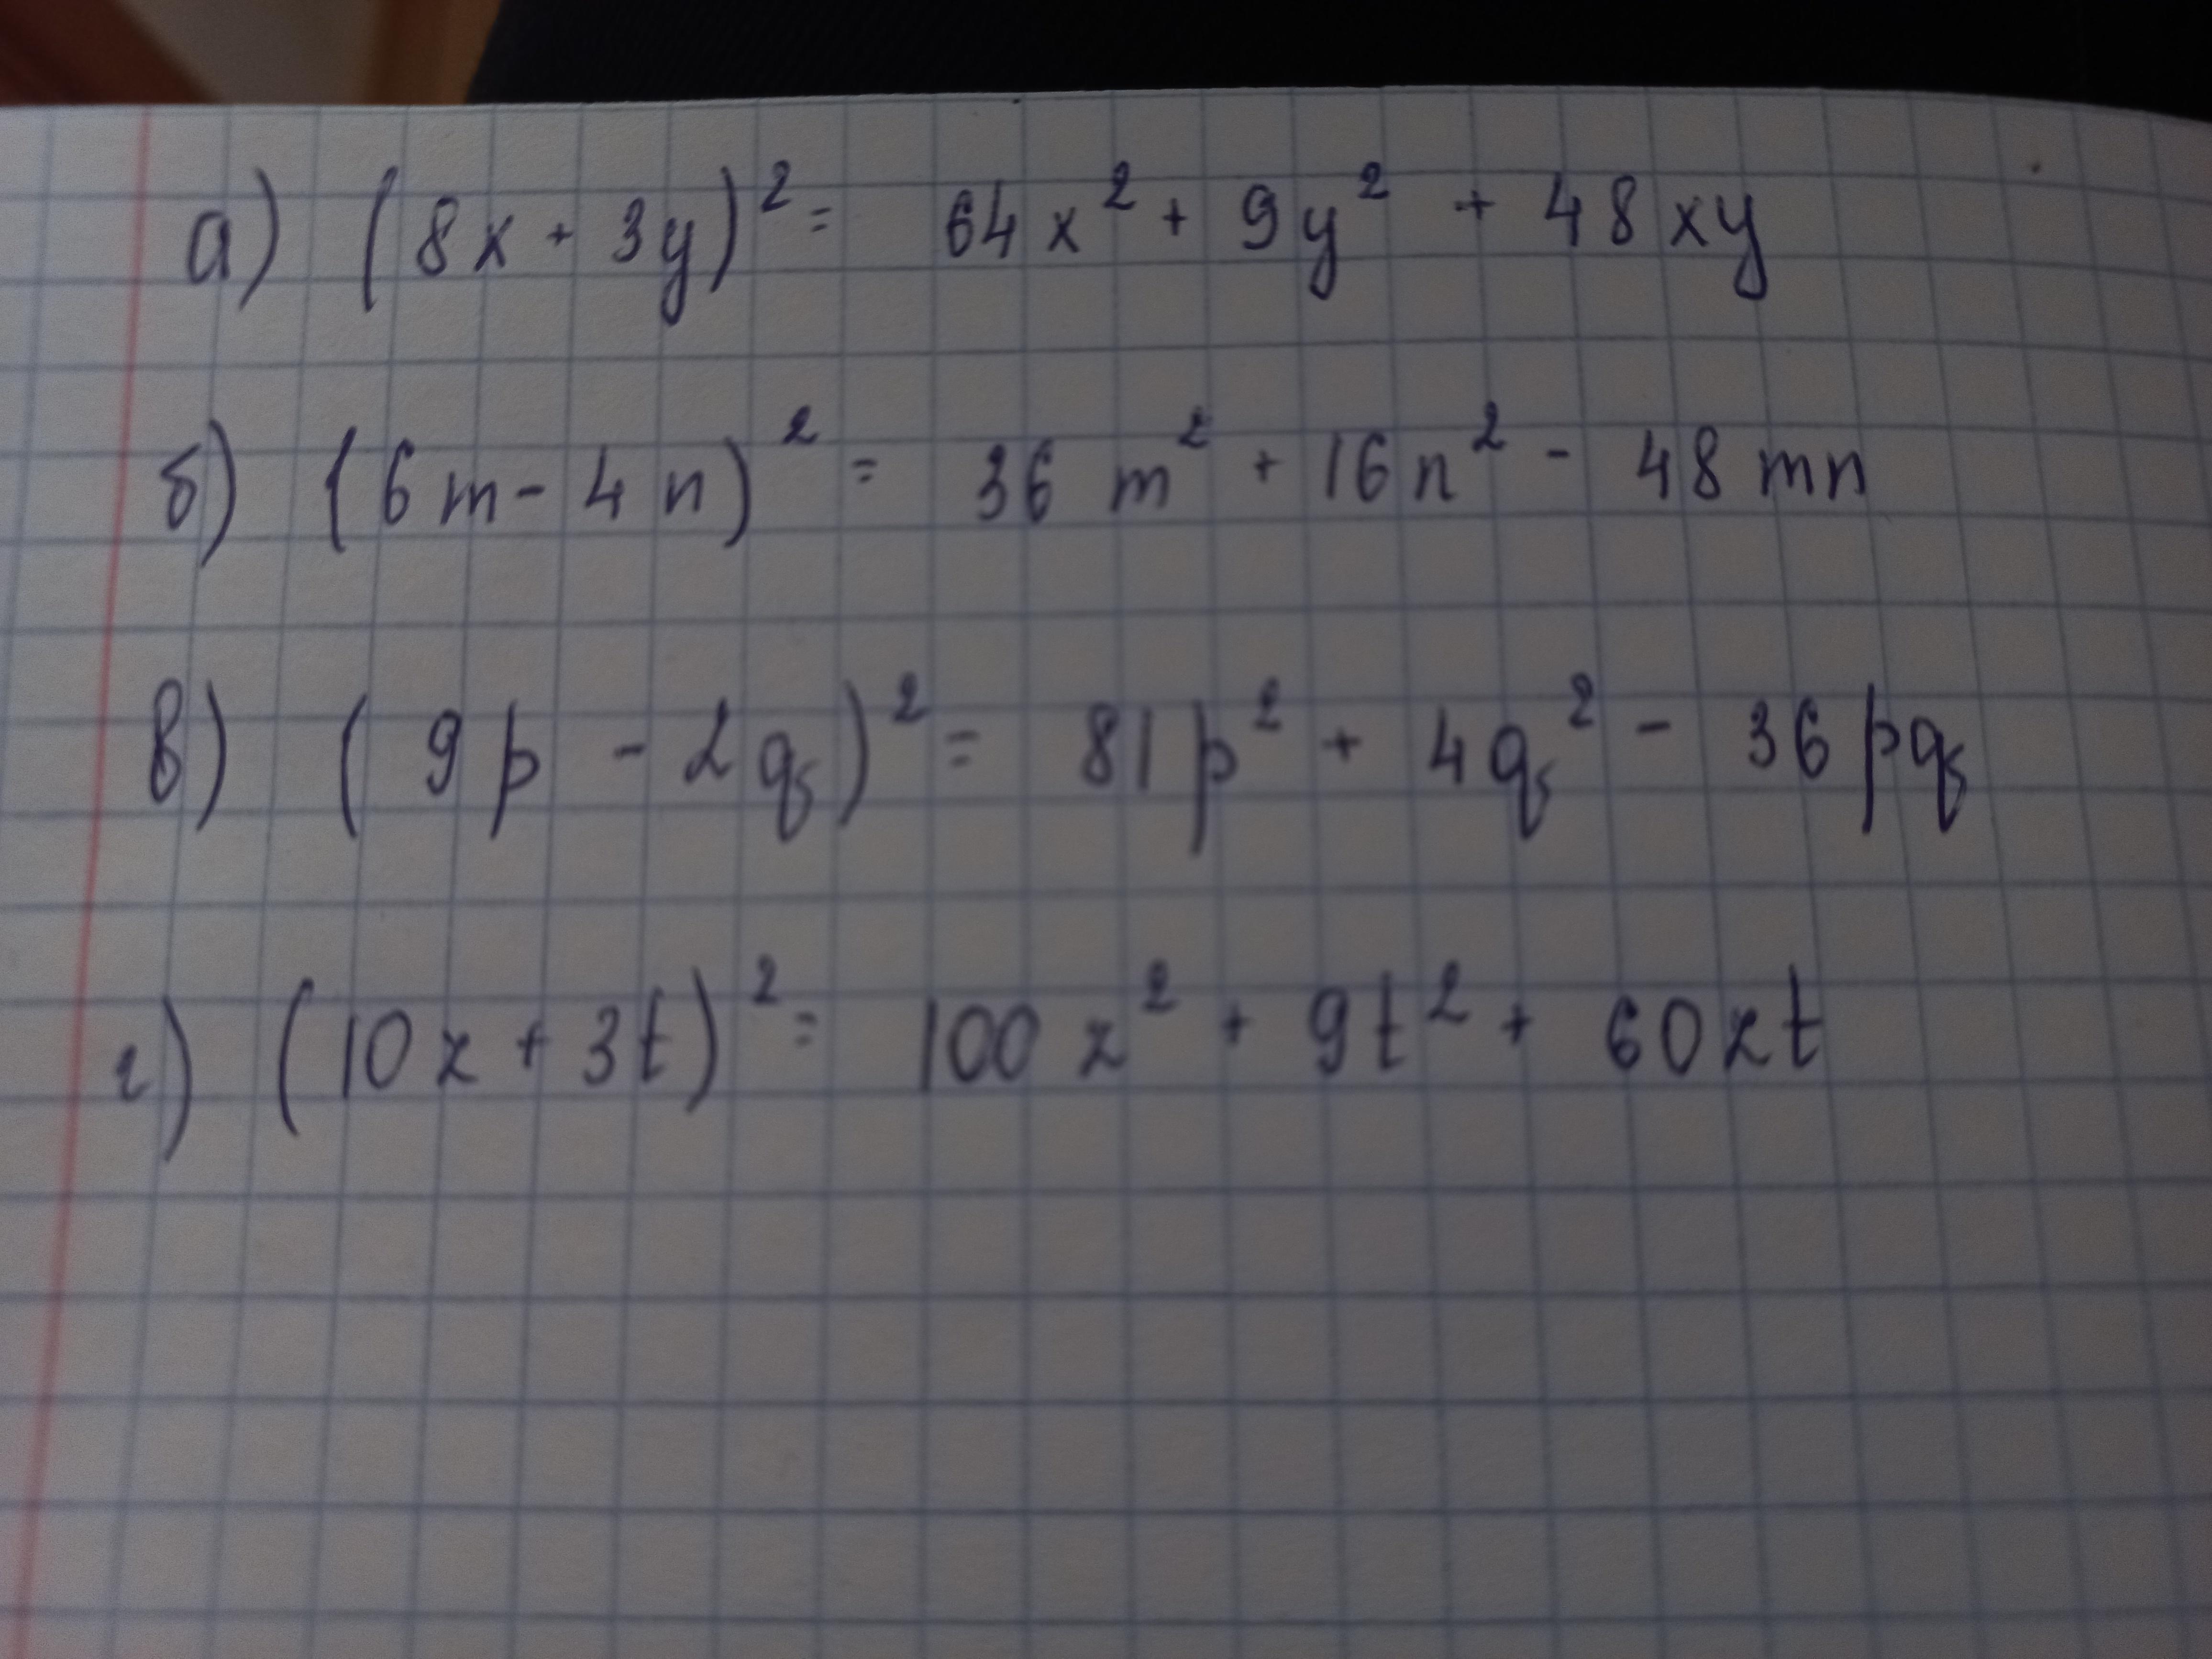 а) (8x + 3y)² = 64x² + 9y² + 48xy
б) (6m - 4n)² = 36m² + 16n² - 48mn
в) (9p - 2q)² = 81p² + 4q² - 36pq
г) (10z + 3t)² = 100z² + 9t² + 60zt